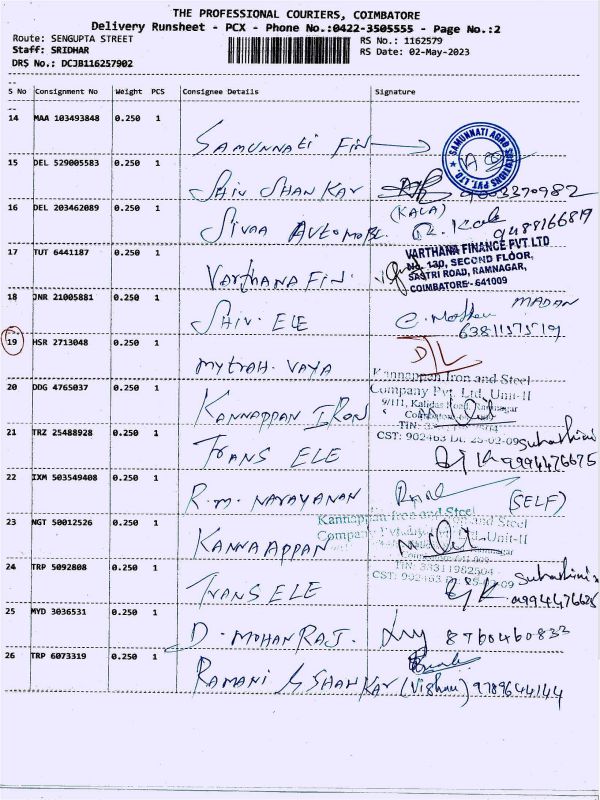 THE PROFESSIONAL COURIERS, COIMBATORE
Delivery Runsheet - PCX - Phone No.:0422-3505555 - Page No.:2
Route: SENGUPTA STREET RS No.: 1162579
Staff: SRIDHAR RS Date: 02-May-2023
DRS No.: DCJB116257902
S No Consignment No Weight PCS Consignee Details Signature
14 MAA 103493848 0.250 1
SAMUNNATI FIN
SAMUNNATI AGRO SOLUTIONS PVT. LTD.
15 DEL 529005583 0.250 1
SHIV SHANKAR
16 DEL 203462089 0.250 1 (KALA)
SIVAA AUTOMOBI 9488166819
17 TUT 6441187 0.250 1 VARTHANA FINANCE PVT.LTD
No. 130, SECOND FLOOR,
SASTRI ROAD, RAMNAGAR,
Varthana Fin. COIMBATORE - 641009
18 JNR 21005881 0.250 1 MADAN
SHIV. ELE
19 HSR 2713048 0.250 1 D/L
MYTRAH. VAYA
Kannappan Iron and Steel
20 DDG 4765037 0.250 1 Company Pvt. Ltd, Unit-II
9/111, Kalidas Road, Ramnagar
KANNAPPAN IRON
CST: 902463 Dt. 25-02-09
21 TRZ 25488928 0.250 1
TRANS ELE 9994476675
22 IXM 503549408 0.250 1
R.M. NARAYANAN (SELF)
Kannappan Iron and Steel
23 NGT 50012526 0.250 1 Company Pvt. Ltd, Unit-II
KANNAAPPAN
TIN: 33311982504
24 TRP 5092808 0.250 1
TRANS ELE 9994476675
25 MYD 3036531 0.250 1
D. MOHAN RAJ. 8760460833
26 TRP 6073319 0.250 1
RAMANI G SHANKAR (Vishnu) 9789644144